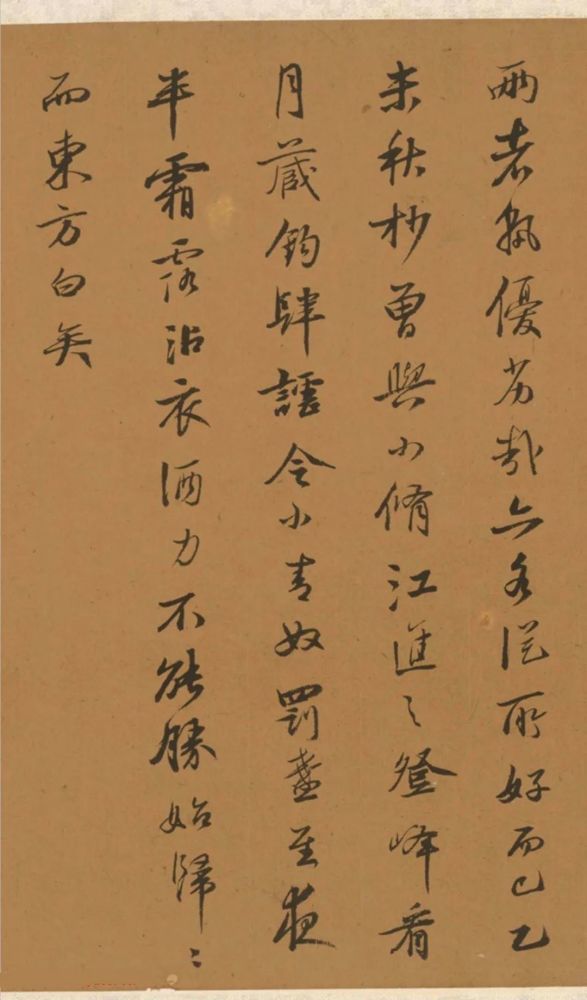 兩者孰優劣哉亦各從所好而已乙
未秋杪曾與小脩江進之登峰看
月藏鉤肆謡令小青奴罰盞至夜
半霜露沾衣酒力不能勝始歸歸
而東方白矣